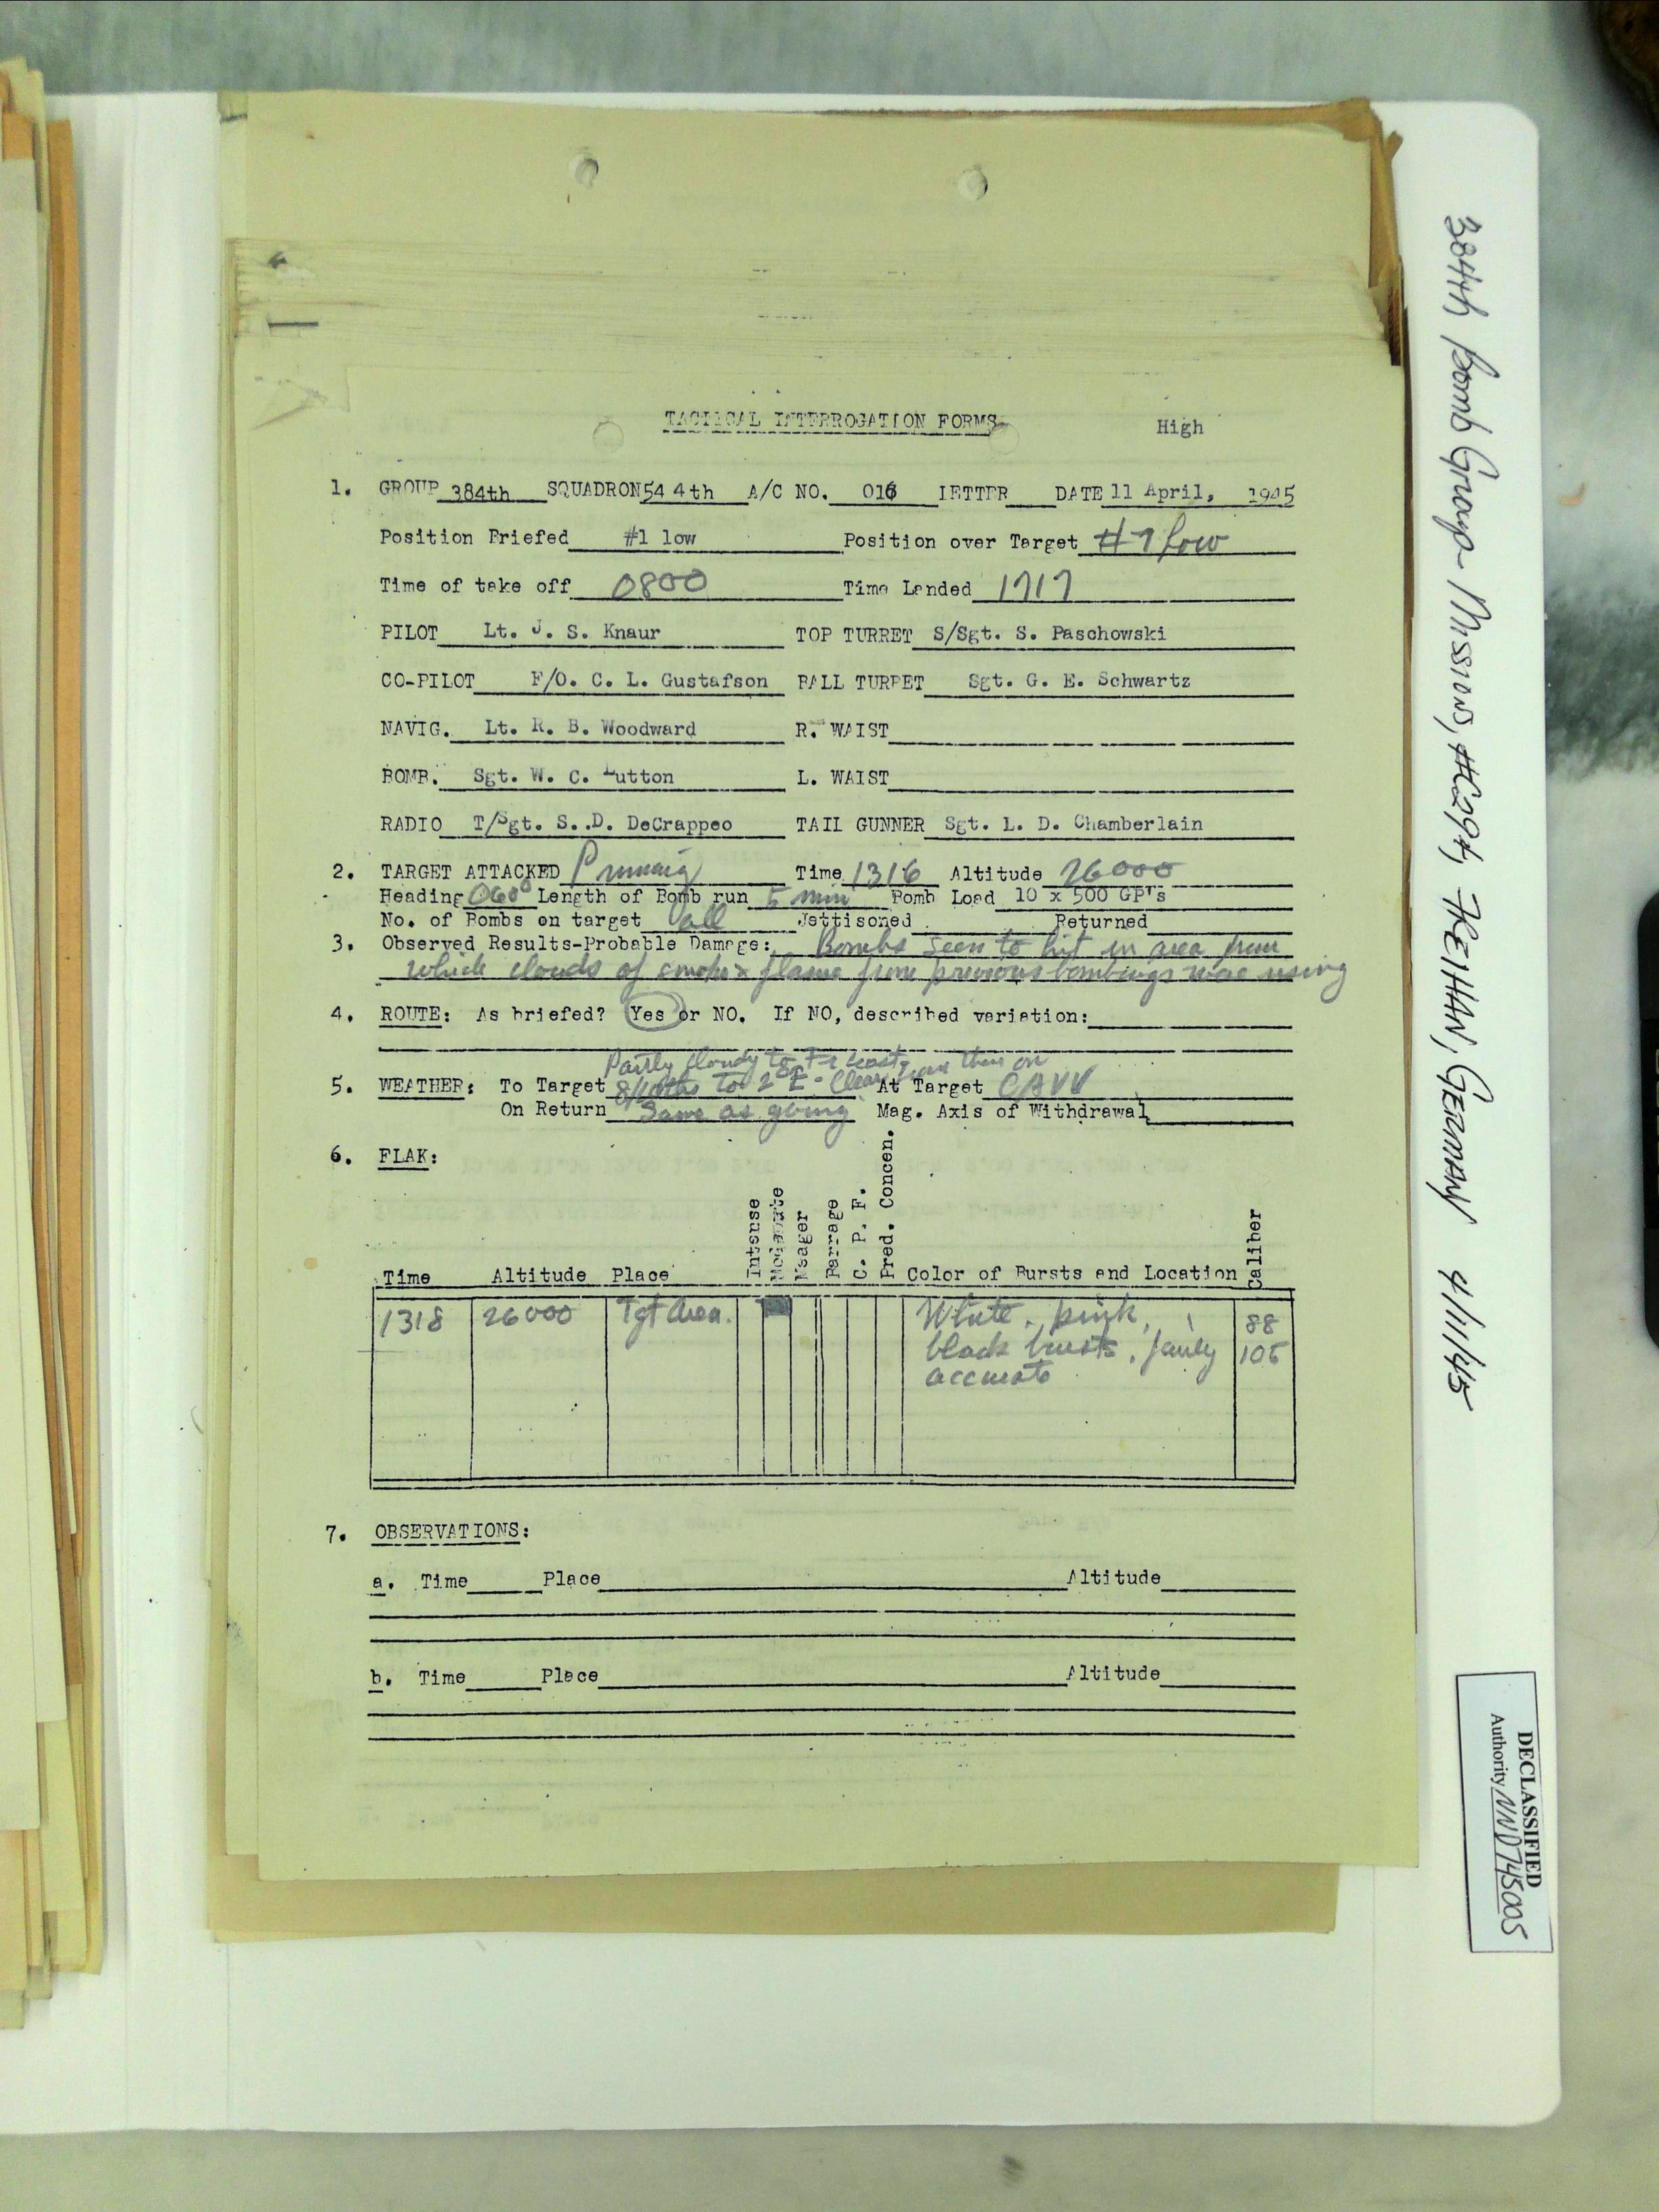 TACTICAL INTERROGATION FORMS
High
1. GROUP 384th SQUADRON 544th A/C NO. 016 LETTER DATE 11 April, 1945
Position Briefed #1 low Position over Target #1 low
Time of take off 0800 Time Landed 1717
PILOT Lt. J. S. Knaur TOP TURRET S/Sgt. S. Paschowski
CO-PILOT F/O. C. L. Gustafson BALL TURRET Sgt. G. E. Schwartz
NAVIG. Lt. R. B. Woodward R. WAIST
BOMB. Sgt. W. C. Lutton L. WAIST
RADIO T/Sgt. S. .D. DeCrappeo TAIL GUNNER Sgt. L. D. Chamberlain
2. TARGET ATTACKED Primary Time 1316 Altitude 26000
Heading 060° Length of Bomb run 5 min Bomb Load 10 x 500 GP's
No. of Bombs on target all Jettisoned Returned
3. Observed Results-Probable Damage: Bombs seen to hit in area from
which clouds of smoke & flame from previous bombings were rising
4. ROUTE: As briefed? Yes or NO. If NO, described variation:
Partly cloudy to Fr coast, then on
5. WEATHER: To Target 8/10ths to 2°E - Clear At Target CAVU
On Return Same as going Mag. Axis of Withdrawal
6. FLAK:
Time Altitude Place Intense Moderate Meager Barrage C. P. F. Pred. Concen. Color of Bursts and Location Caliber
1318 26000 Tgt Area. White, pink, 88
black bursts, fairly 105
accurate
7. OBSERVATIONS:
a. Time Place Altitude
b. Time Place Altitude
384th Bomb Group - Missions, #294, FREIHAN, GERMANY 4/11/45
DECLASSIFIED
Authority NND745005